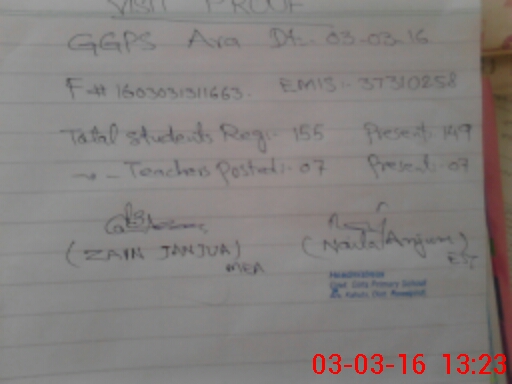 VISIT PROOF
GGPS Ara Dt:- 03-03-16
F-# 1603031311663. EMIS:- 37310258
Total students Reg:- 155 Present:- 149
Teachers Posted:- 07 Present:- 07
(ZAIN JANJUA) (Naila Anjum)
MEA EST
Headmistress
Govt. Girls Primary School
03-03-16 13:23